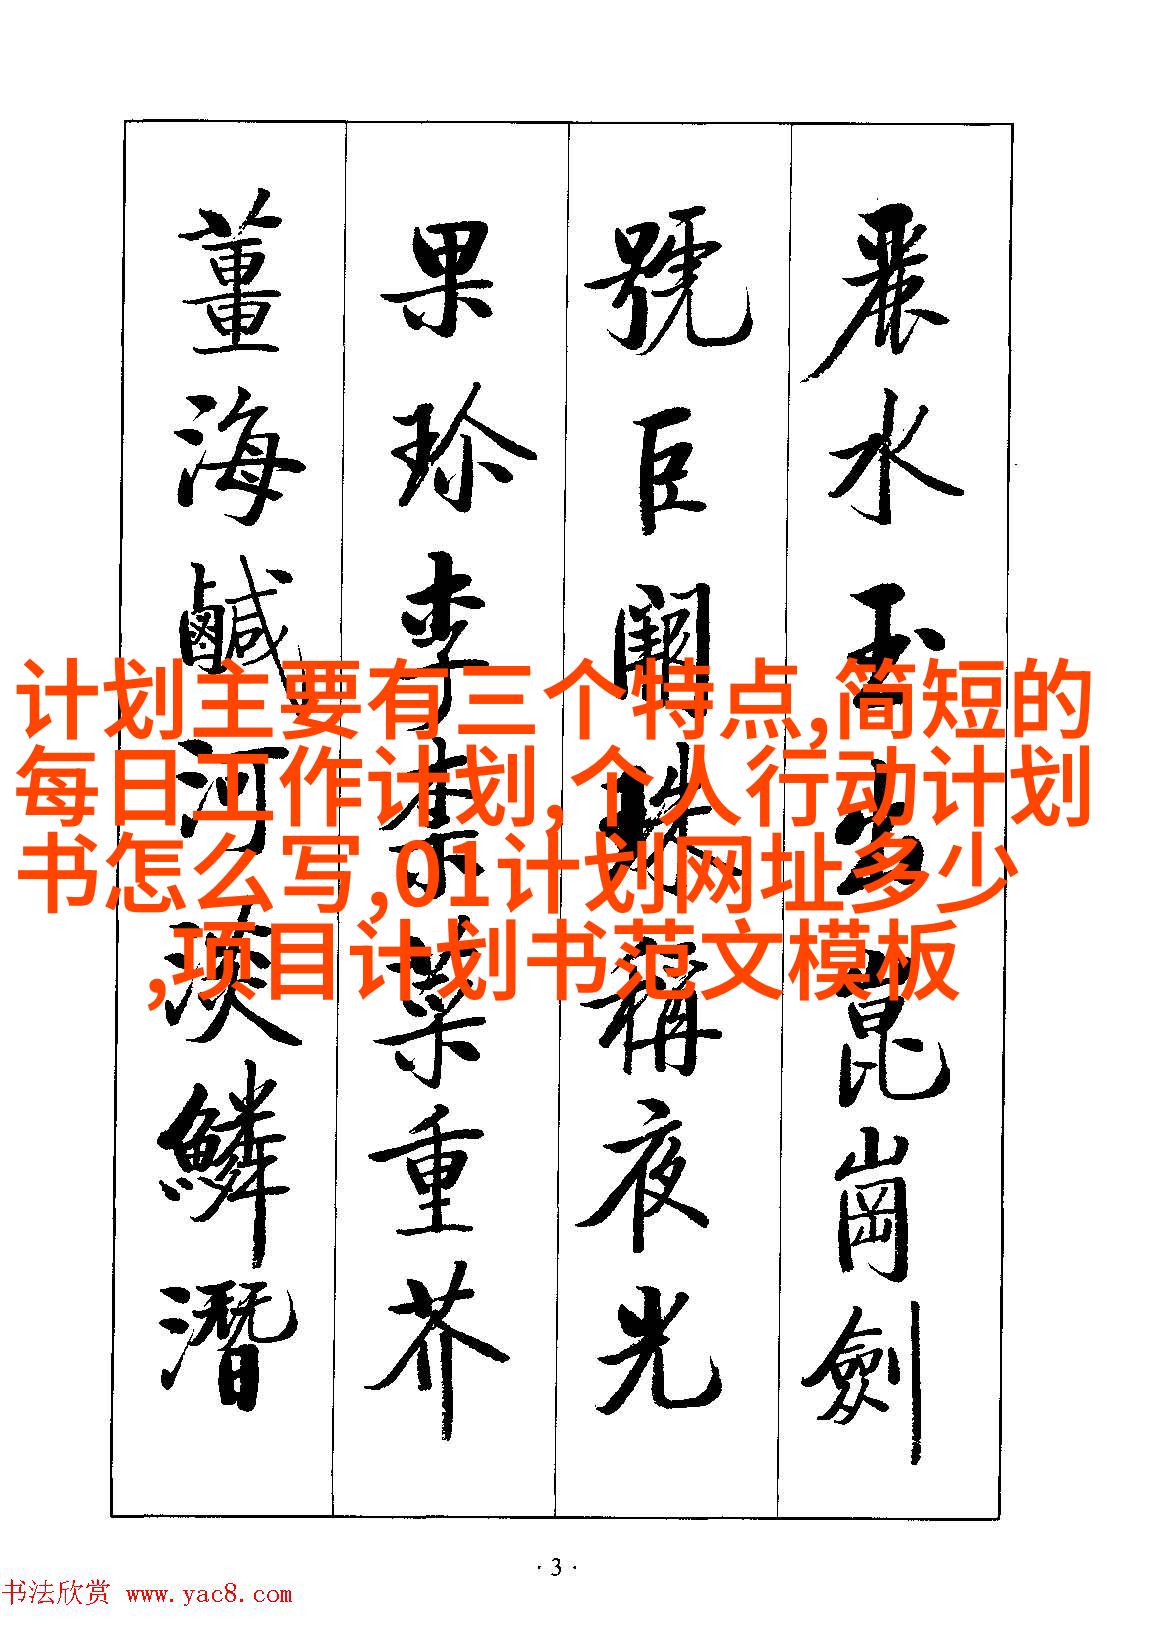 麗水玉出崑崗劍
號巨闕珠稱夜光
果珍李柰菜重芥
薑海鹹河淡鱗潛
计划主要有三个特点,简短的
每日工作计划,个人行动计划
书怎么写,01计划网址多少
,项目计划书范文模板
·3·
书法欣赏 www.yac8.com